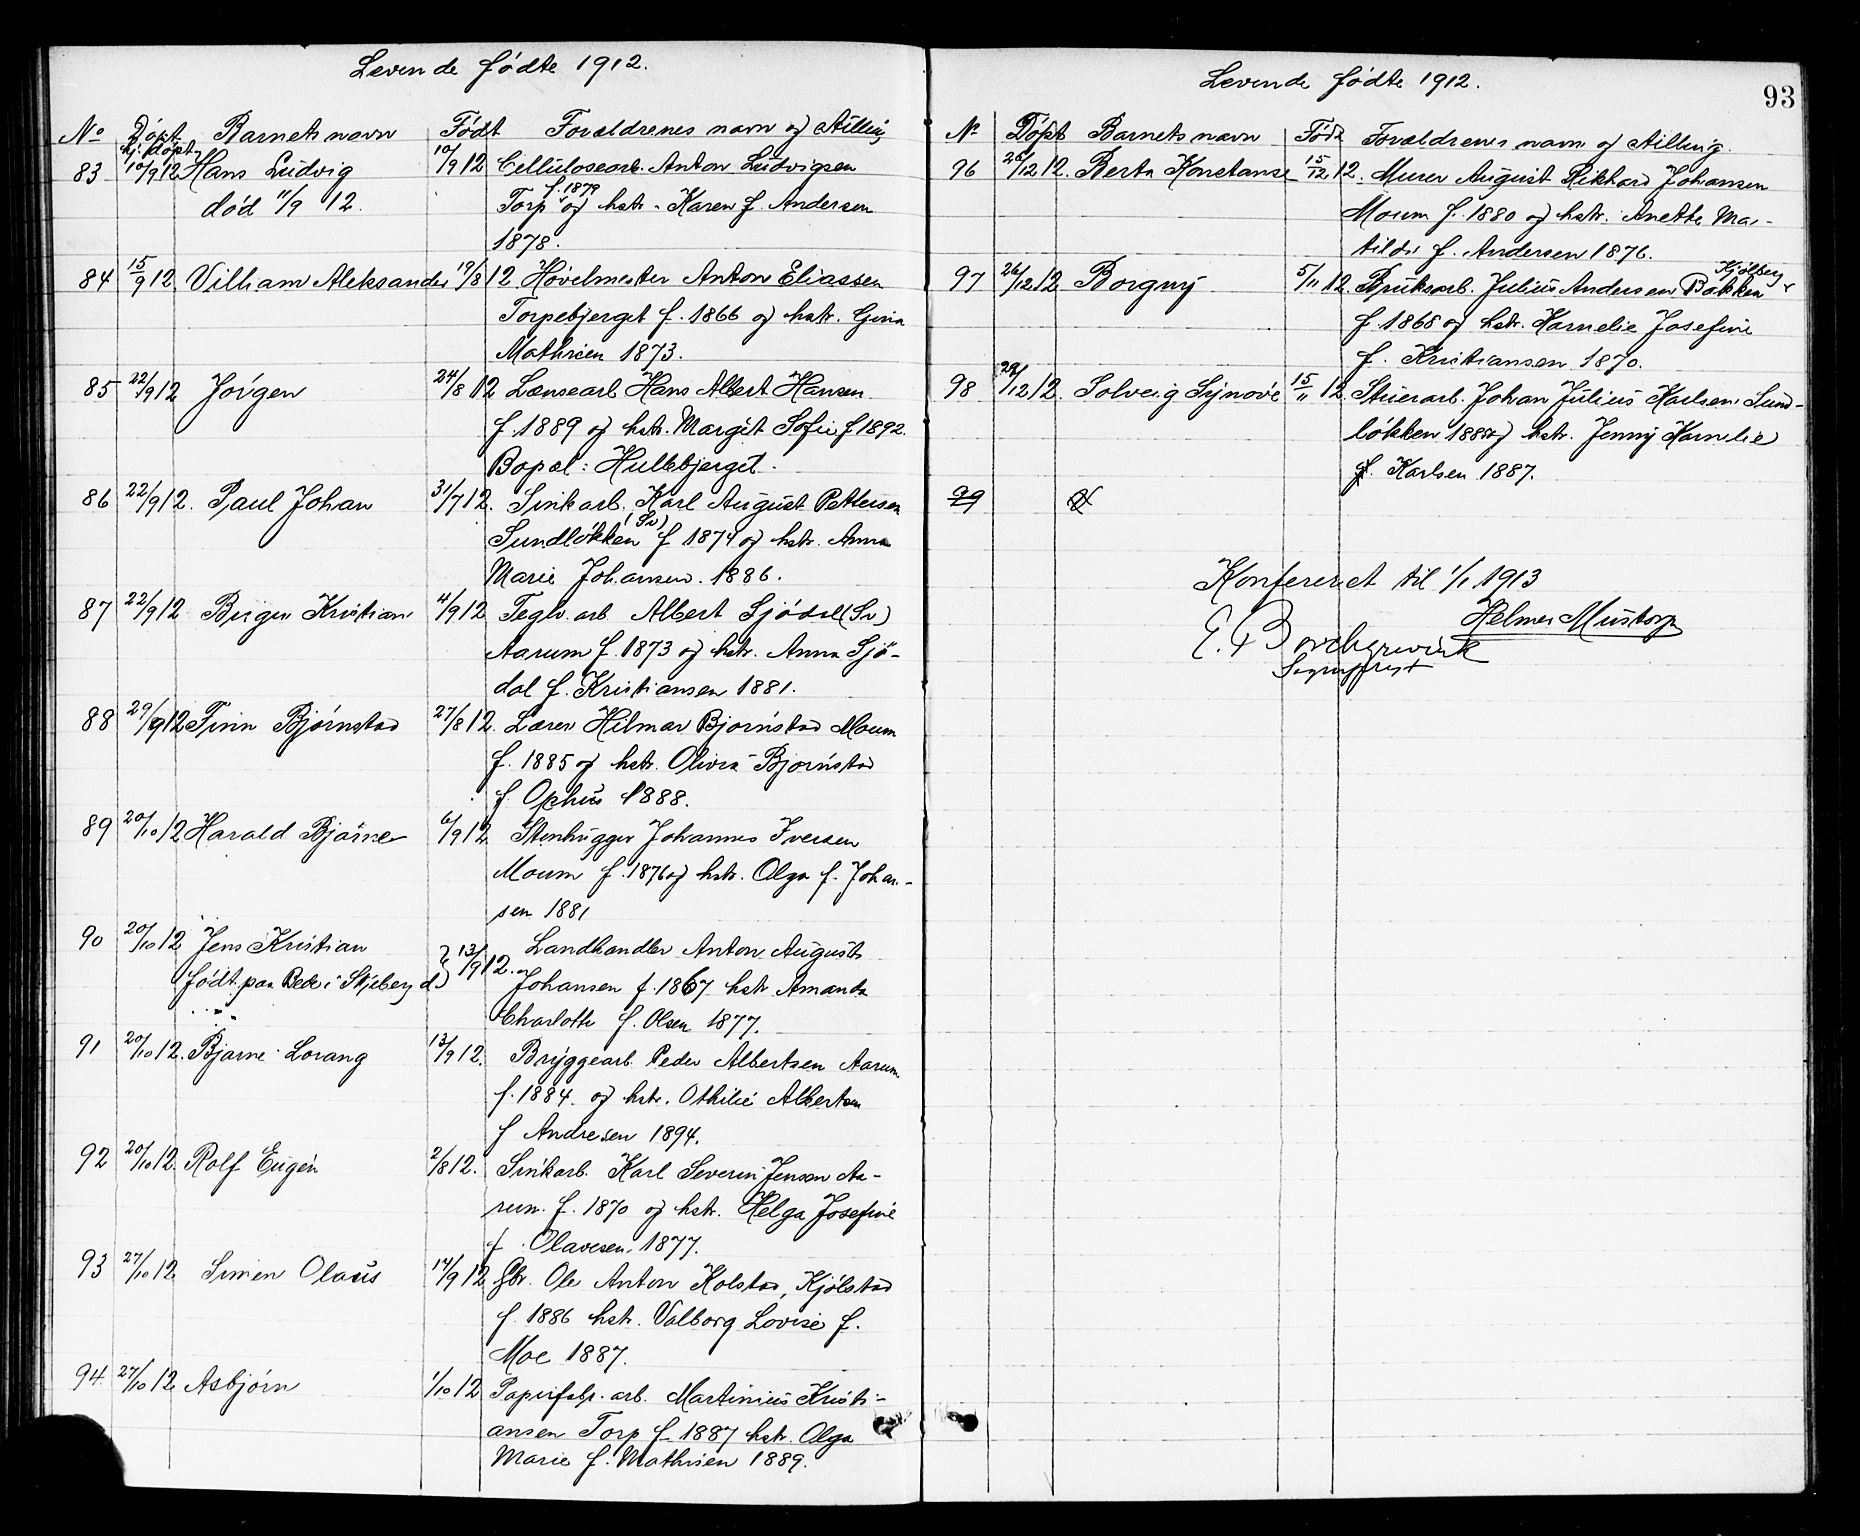 Levende fødte 1912.
No Døpt Barnets navn Født Forældrenes navn og stilling
hj. døpt
83 10/9 12 Hans Ludvig 10/9 12 Cellulosearb. Anton Ludvigsen
død 11/9 12. Torp f. 1879 og hstr. Karen f. Andersen
1878.
84 15/9 12 Villiam Aleksander 19/8 12 Høvelmester Anton Eliassen
Torpebjerget f. 1866 og hstr. Gina
Mathisen 1873.
85 22/9 12 Jørgen 24/8 12 Lænsearb Hans Albert Hansen
f. 1889 og hstr. Margit Sofie f 1892.
Bopæl: Hullebjerget.
86 22/9 12. Paul Johan 31/7 12. Sinkarb. Karl August Pettersen
Sundløkken (Sv) f 1874 og hstr. Anna
Marie Johansen. 1886.
87 22/9 12 Birger Kristian 4/9 12 Teglv. arb Albert Sjödal (Sv)
Aarum f. 1873 og hstr. Anna Sjö-
dal f. Kristiansen 1881.
88 29/9 12 Finn Bjørnstad 27/8 12. Lærer Hilmar Bjørnstad Moum
f. 1885 og hstr. Olivia Bjørnstad
f. Ophus 1888.
89 20/10 12 Harald Bjarne 6/9 12 Stenhugger Johannes Iversen
Moum f. 1876 og hstr. Olga f. Johan-
sen 1881
90 20/10 12 Jens Kristian 13/9 12. Landhandler Anton August
født paa Bede i Skjeberg d. Johansen f. 1867 hstr Amanda
Charlotte f. Olsen 1877.
91 20/10 12. Bjarne Lorang 13/9 12. Bryggearb. Peder Albertsen Aarum
f. 1884 og hstr. Othilie Albertsen
f Andresen 1894.
92 20/10 12. Rolf Eugén 2/8 12. Sinkarb. Karl Severin Jensen Aa-
rum. f. 1870 og hstr. Helga Josefine
f. Olavesen. 1877.
93 27/10 12 Simen Olaus 14/9 12 Gbr. Ole Anton Kolstad, Kjølstad
f. 1886 hstr. Valborg Lovise f.
Moe 1887.
94. 27/10 12 Asbjørn 1/10 12 Papirfabr. arb. Martinius Kristi-
ansen Torp f. 1887 hstr. Olga
Marie f. Mathisen 1889.
Levende fødte 1912.
93
No Døpt Barnets navn Født Forældrenes navn og stilling
96 26/12 12. Berta Konstanse 15/12 12. Murer August Rikhard Johansen
Moum f. 1880 og hstr. Anette Ma-
tilde f. Andersen 1876.
97 26/12 12 Borgny 5/11 12. Bruksarb. Julius Andersen Bakken Kjølberg
f. 1868 og hstr. Kornelie Josefine
f. Kristiansen 1870.
98 29/12 12. Solveig Synøve 15/11 12 Stuerarb. Johan Julius Karlsen Sund-
løkken 1885 og hstr. Jenny Kornelie
f. Karlsen 1887.
99
Konfereret til 1/1 1913
Helmer Mustorp
E. Borchgrevink
Sogneprest